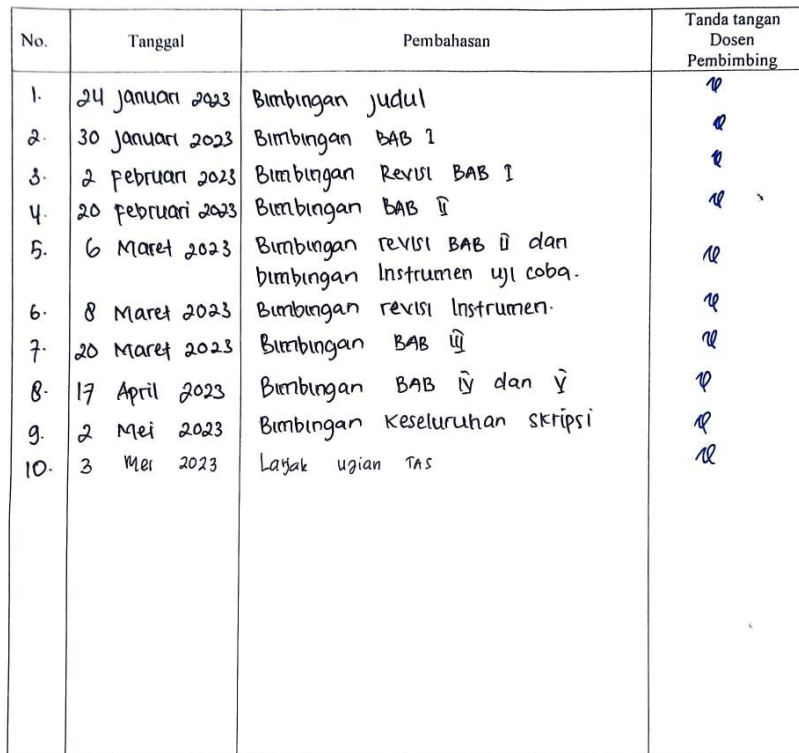 No. Tanggal Pembahasan Tanda tangan
Dosen
Pembimbing
1. 24 Januari 2023 Bimbingan Judul
2. 30 Januari 2023 Bimbingan BAB I
3. 2 Februari 2023 Bimbingan Revisi BAB I
4. 20 Februari 2023 Bimbingan BAB II
5. 6 Maret 2023 Bimbingan revisi BAB II dan
bimbingan Instrumen uji coba.
6. 8 Maret 2023 Bimbingan revisi Instrumen.
7. 20 Maret 2023 Bimbingan BAB III
8. 17 April 2023 Bimbingan BAB IV dan V
9. 2 Mei 2023 Bimbingan Keseluruhan skripsi
10. 3 Mei 2023 Layak ujian TAS